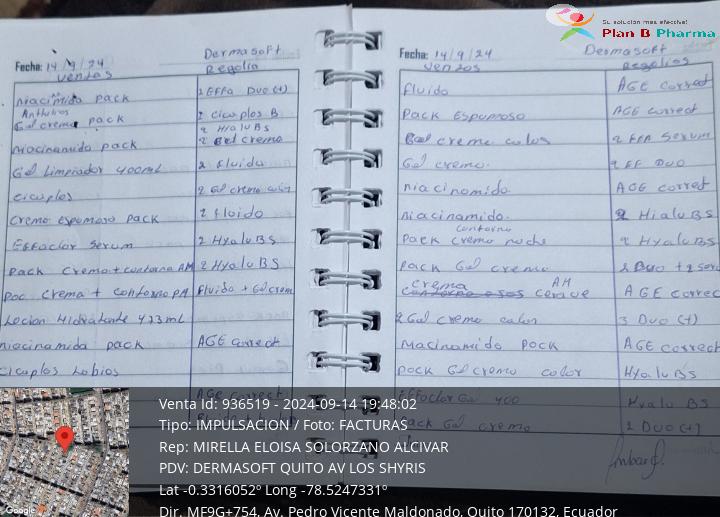 Su solución más efectiva!
Plan B Pharma
Fecha: 14/9/24 Dermasoft
Ventas Regalia
Niacimida pack 1 EFFA DUO (+)
Anthelios
Gel crema pack 2 Cicaplos B
2 Hialu BS
Niacinamida pack 2 Gel crema
Gel Limpiador 400ml 2 Fluido
Cicaplos 2 Gel crema color
Crema espumosa pack 2 Fluido
Effaclor Serum 2 Hyalu BS
Pack Crema + contorno AM 2 Hyalu BS
Crema + contorno PM Fluido + Gel crem
Locion Hidratante 473 ml
Niacinamida pack AGE correct
Cicaplos Labios
AGE correct
Fecha: 14/9/24 Dermasoft
Ventas Regalias
Fluido AGE correct
Pack Espumoso AGE correct
Gel crema color 2 EFA Serum
Gel crema. 2 EF DUO
Niacinamida. AGE correct
Niacinamida. 2 Hialu BS
contorno
Pack crema noche 2 Hyalu BS
Pack Gel crema 1 Duo + 2 Seru
Crema AM
AGE correc
2 Gel cremo color 3 Duo (+)
Niacinamida Pock AGE correct
Pock Gel cremo color Hyalu BS
Effaclor Gel 400 Hyalu BS
Pack Gel crema 2 Duo (+)
Google
Venta Id: 936519 - 2024-09-14 19:48:02
Tipo: IMPULSACION / Foto: FACTURAS
Rep: MIRELLA ELOISA SOLORZANO ALCIVAR
PDV: DERMASOFT QUITO AV LOS SHYRIS
Lat -0.3316052° Long -78.5247331°
Dir. MF9G+754, Av. Pedro Vicente Maldonado, Quito 170132, Ecuador